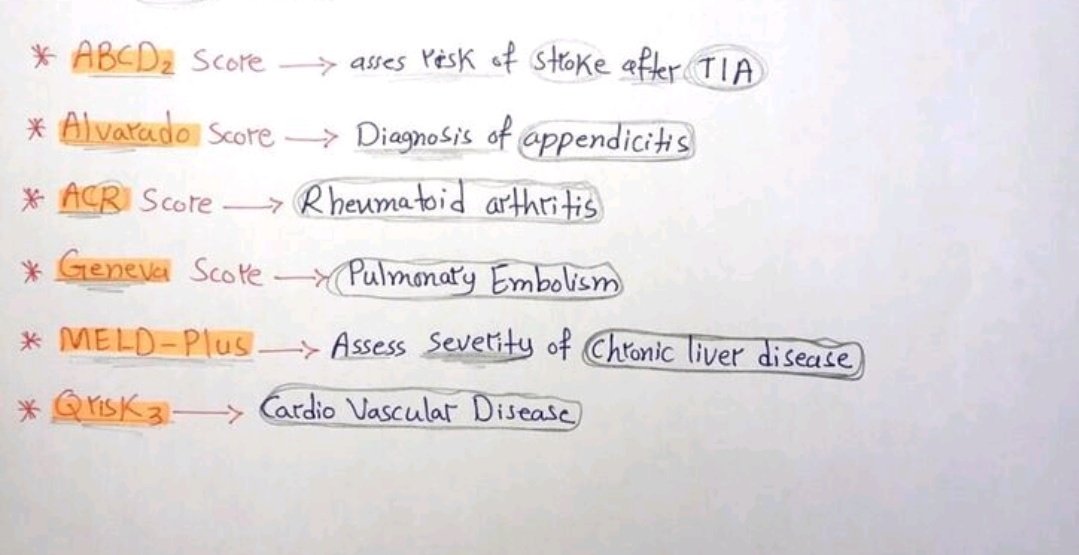 * ABCD2 Score → asses risk of stroke after TIA
* Alvarado Score → Diagnosis of appendicitis
* ACR Score → Rheumatoid arthritis
* Geneva Score → Pulmonary Embolism
* MELD-Plus → Assess severity of Chronic liver disease
* Qrisk3 → Cardio Vascular Disease